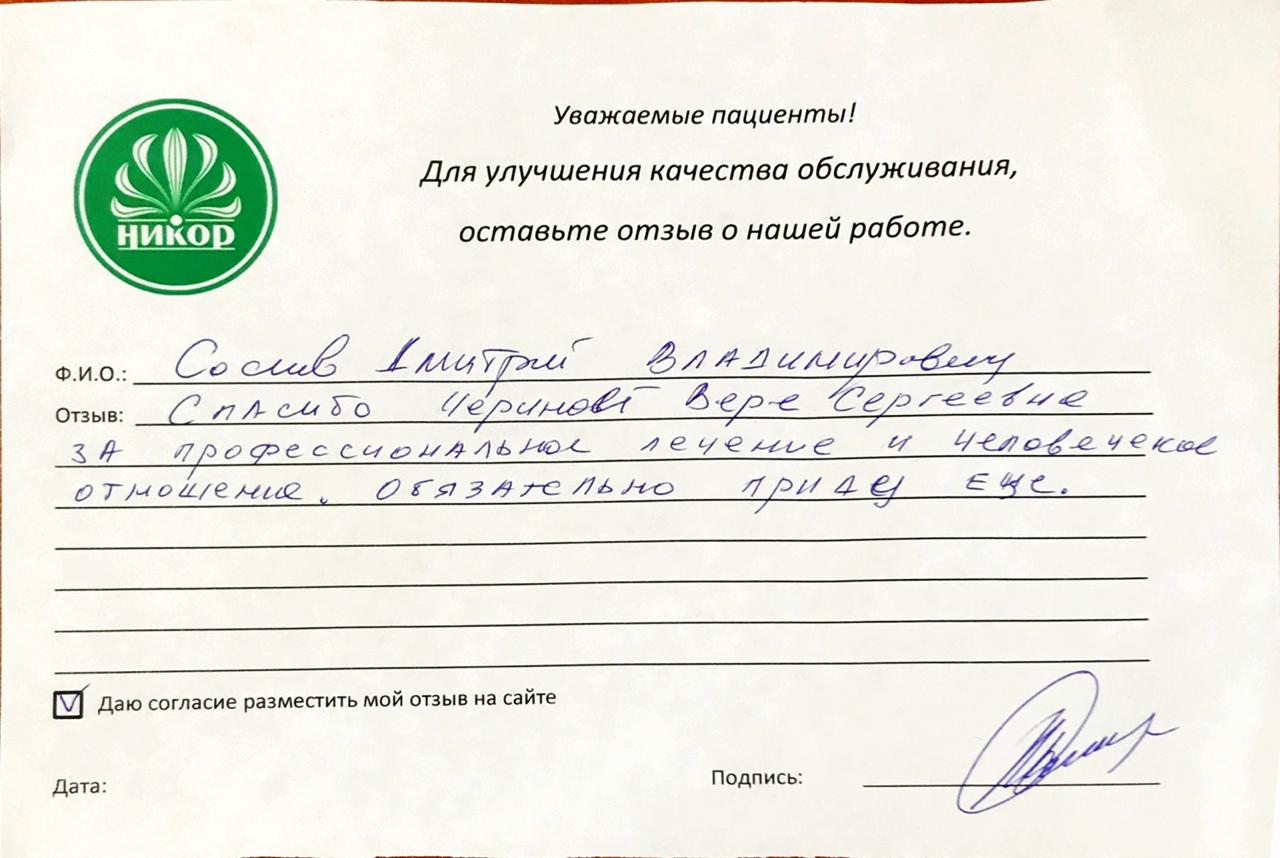 НИКОР
Уважаемые пациенты!
Для улучшения качества обслуживания,
оставьте отзыв о нашей работе.
Ф.И.О.: Дмитрий Владимирович
Отзыв: Спасибо Вере Сергеевне
за профессиональное лечение и человеческое
отношение. Обязательно приду еще.
Даю согласие разместить мой отзыв на сайте
Дата:
Подпись: